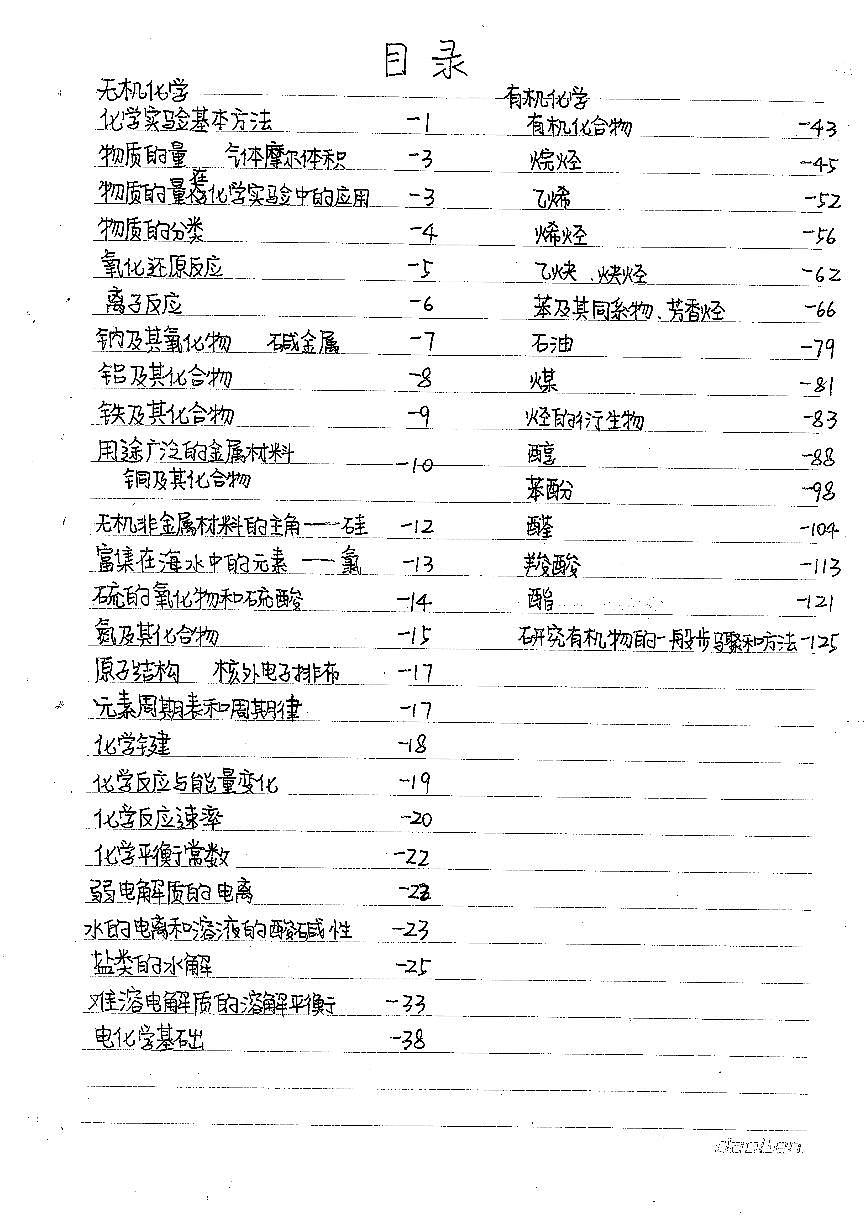 目录
无机化学
化学实验基本方法 -1
物质的量 气体摩尔体积 -3
物质的量在化学实验中的应用 -3
物质的分类 -4
氧化还原反应 -5
离子反应 -6
钠及其氧化物 碱金属 -7
铝及其化合物 -8
铁及其化合物 -9
用途广泛的金属材料
铜及其化合物 -10
无机非金属材料的主角——硅 -12
富集在海水中的元素——氯 -13
硫的氧化物和硫酸 -14
氮及其化合物 -15
原子结构 核外电子排布 -17
元素周期表和周期律 -17
化学键 -18
化学反应与能量变化 -19
化学反应速率 -20
化学平衡常数 -22
弱电解质的电离 -22
水的电离和溶液的酸碱性 -23
盐类的水解 -25
难溶电解质的溶解平衡 -33
电化学基础 -38
有机化学
有机化合物 -43
烷烃 -45
乙烯 -52
烯烃 -56
乙炔、炔烃 -62
苯及其同系物、芳香烃 -66
石油 -79
煤 -81
烃的衍生物 -83
醇 -88
苯酚 -98
醛 -104
羧酸 -113
酯 -121
研究有机物的一般步骤和方法 -125